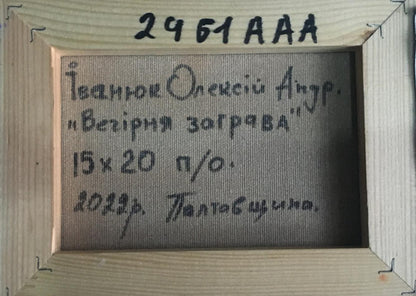 2461ААА
Іванюк Олексій Андр.
"Вечірня заграва"
15х20 п/о.
2022р. Полтавщина.